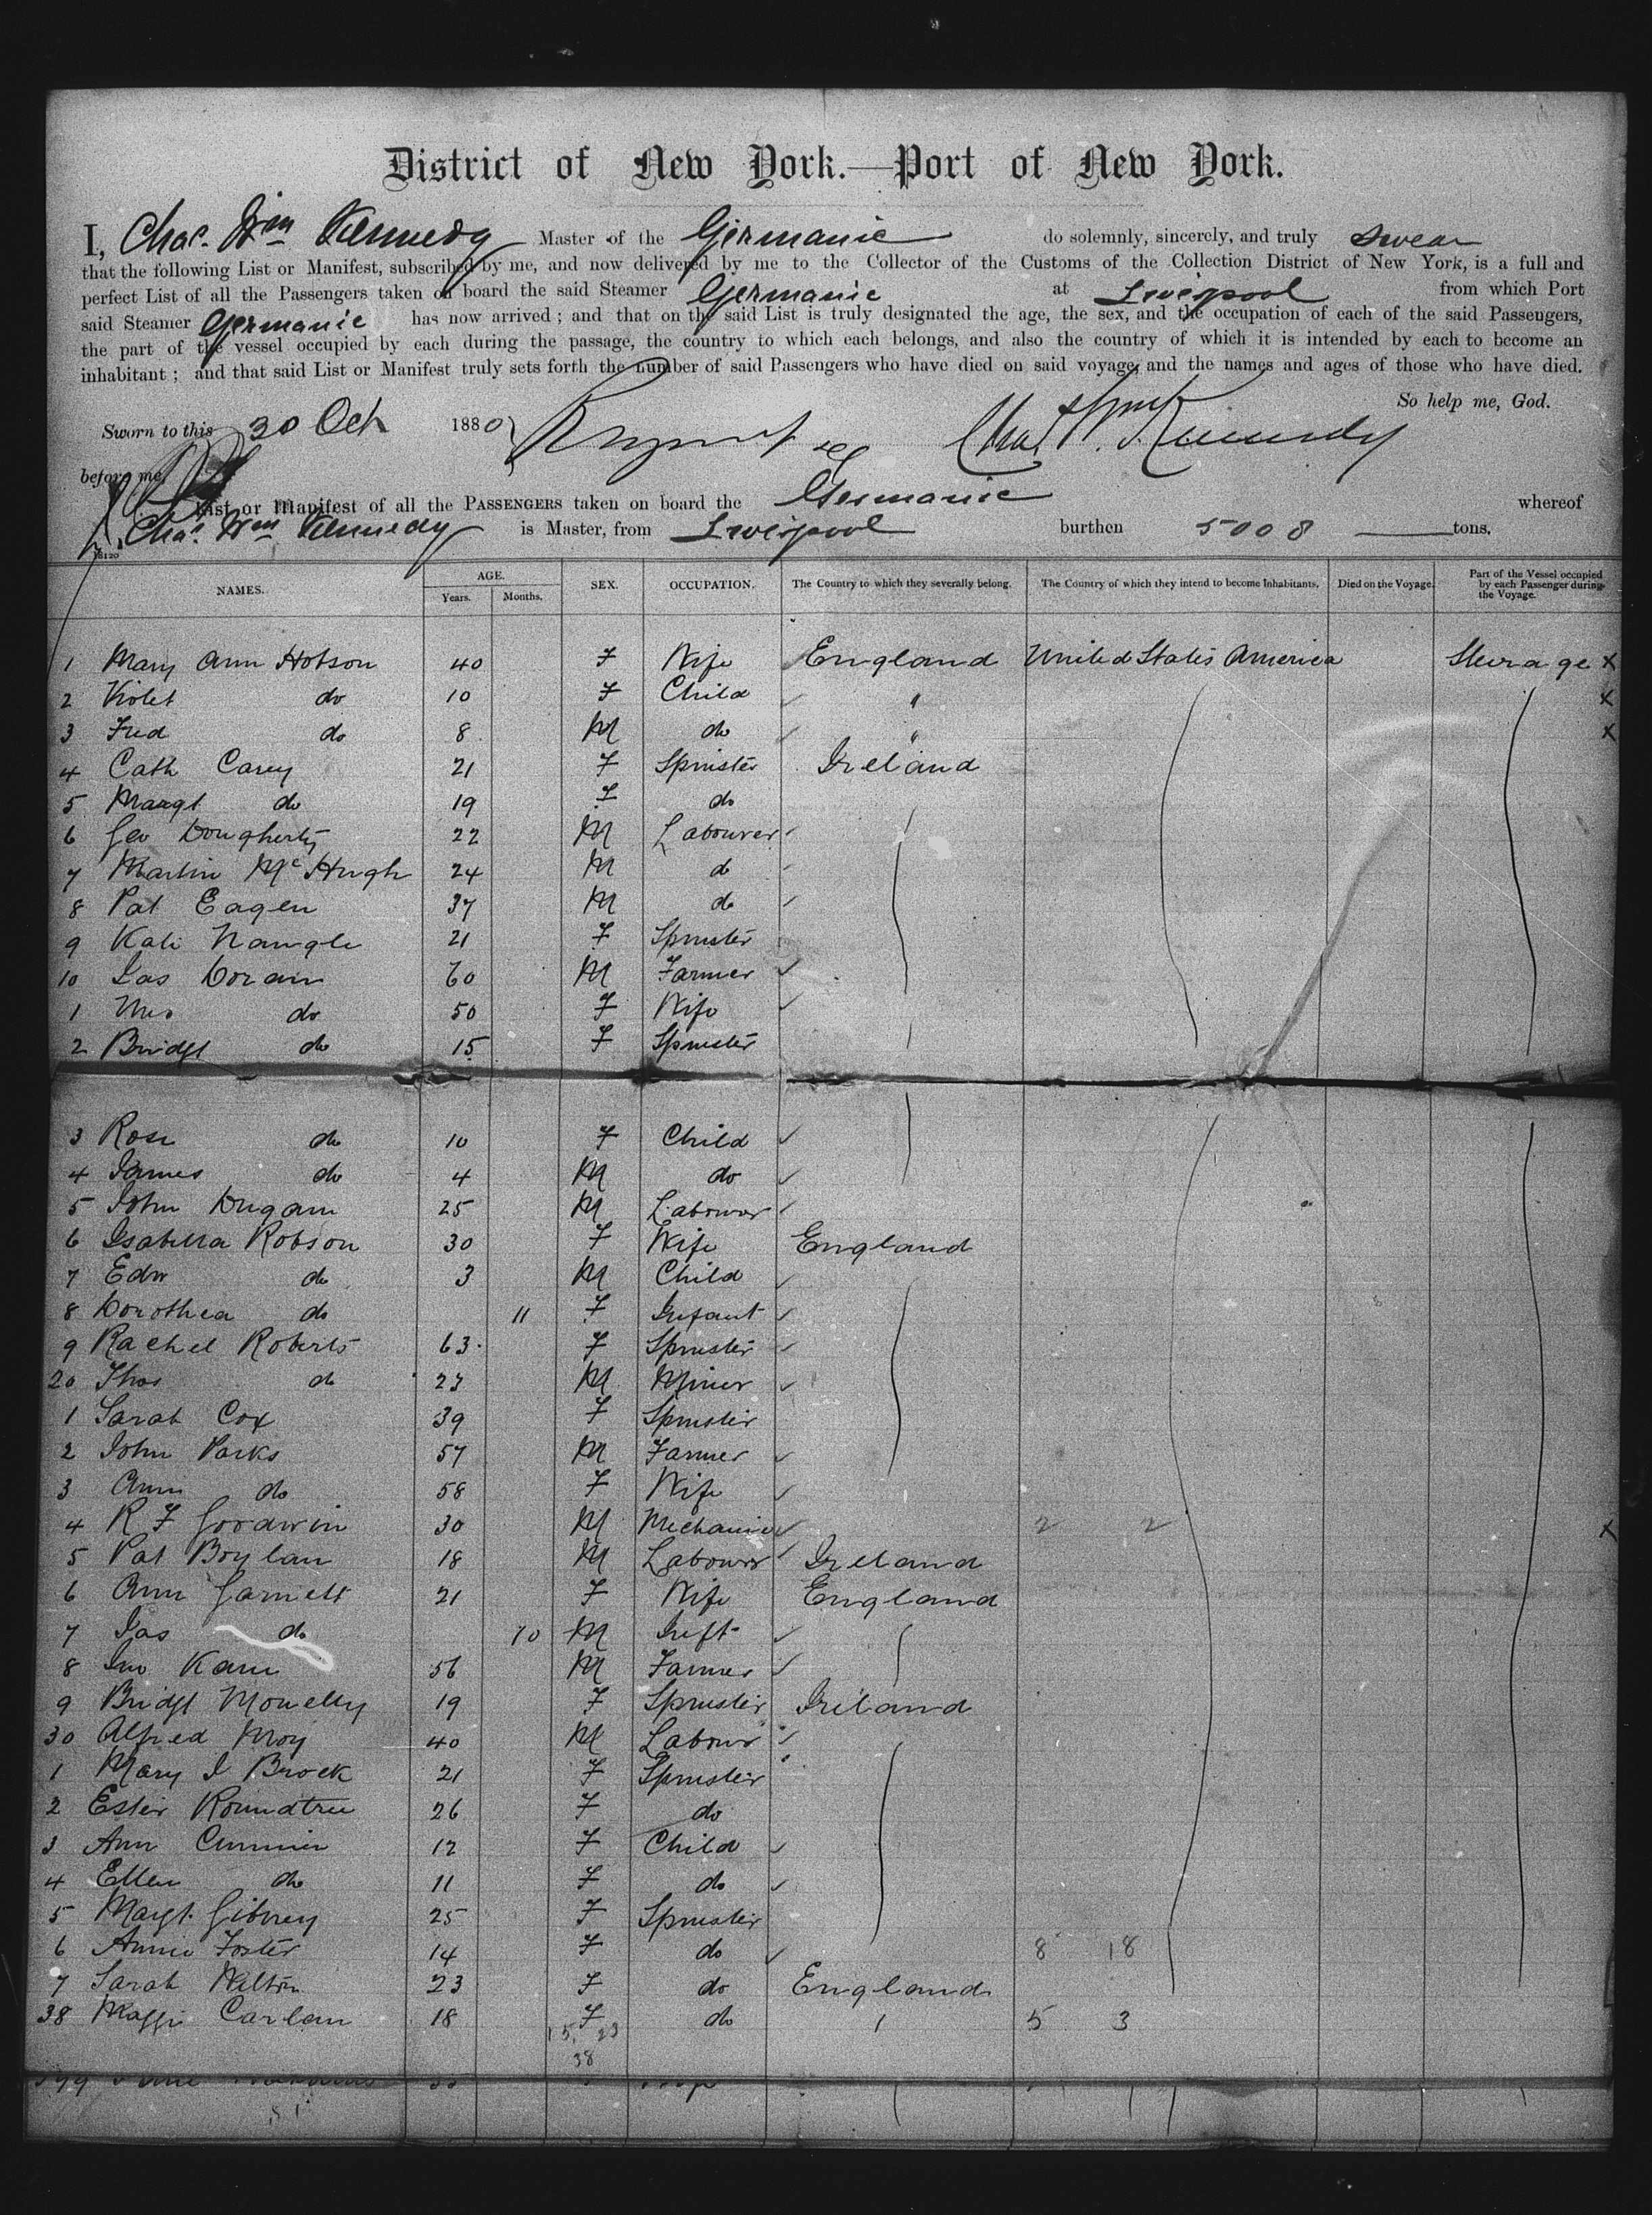 District of New York.—Port of New York.
I, Chas. Wm Kennedy Master of the Germanic do solemnly, sincerely, and truly swear
that the following List or Manifest, subscribed by me, and now delivered by me to the Collector of the Customs of the Collection District of New York, is a full and
perfect List of all the Passengers taken on board the said Steamer Germanic at Liverpool from which Port
said Steamer Germanic has now arrived; and that on the said List is truly designated the age, the sex, and the occupation of each of the said Passengers,
the part of the vessel occupied by each during the passage, the country to which each belongs, and also the country of which it is intended by each to become an
inhabitant; and that said List or Manifest truly sets forth the number of said Passengers who have died on said voyage, and the names and ages of those who have died.
So help me, God.
Sworn to this 30 Oct 1880 Chas W. Kennedy
before me
List or Manifest of all the PASSENGERS taken on board the Germanic whereof
Chas. Wm Kennedy is Master, from Liverpool burthen 5008 tons.
NAMES. AGE. Years. Months. SEX. OCCUPATION. The Country to which they severally belong. The Country of which they intend to become Inhabitants. Died on the Voyage. Part of the Vessel occupied by each Passenger during the Voyage.
1 Mary Ann Hobson 40 F Wife England United States America Steerage x
2 Violet do 10 F Child " x
3 Fred do 8 M do " x
4 Cath Carey 21 F Spinster Ireland
5 Margt do 19 F do
6 Geo Dougherty 22 M Labourer
7 Martin McHugh 24 M do
8 Pat Eagen 37 M do
9 Kate Nangle 21 F Spinster
10 Jas Doran 60 M Farmer
1 Mrs do 50 F Wife
2 Bridgt do 15 F Spinster
3 Rose do 10 F Child
4 James do 4 M do
5 John Dugan 25 M Labourer
6 Isabella Robson 30 F Wife England
7 Edw do 3 M Child
8 Dorothea do 11 F Infant
9 Rachel Roberts 63 F Spinster
20 Thos do 23 M Miner
1 Sarah Cox 39 F Spinster
2 John Parks 57 M Farmer
3 Ann do 58 F Wife
4 R F Goodwin 30 M Mechanic 2 2 x
5 Pat Boylan 18 M Labourer Ireland
6 Ann Garnett 21 F Wife England
7 Jas do 10 M Inft
8 Jno Kane 56 M Farmer
9 Bridgt Monelly 19 F Spinster Ireland
30 Alfred Moy 40 M Labour
1 Mary J Brock 21 F Spinster
2 Ester Roundtree 26 F do
3 Ann 12 F Child
4 Ellen do 11 F do
5 Margt Gibney 25 F Spinster
6 Annie Foster 14 F do 8 18
7 Sarah Wilton 23 F do England
38 Maggie Carlan 18 F do 5 3
15, 23
38